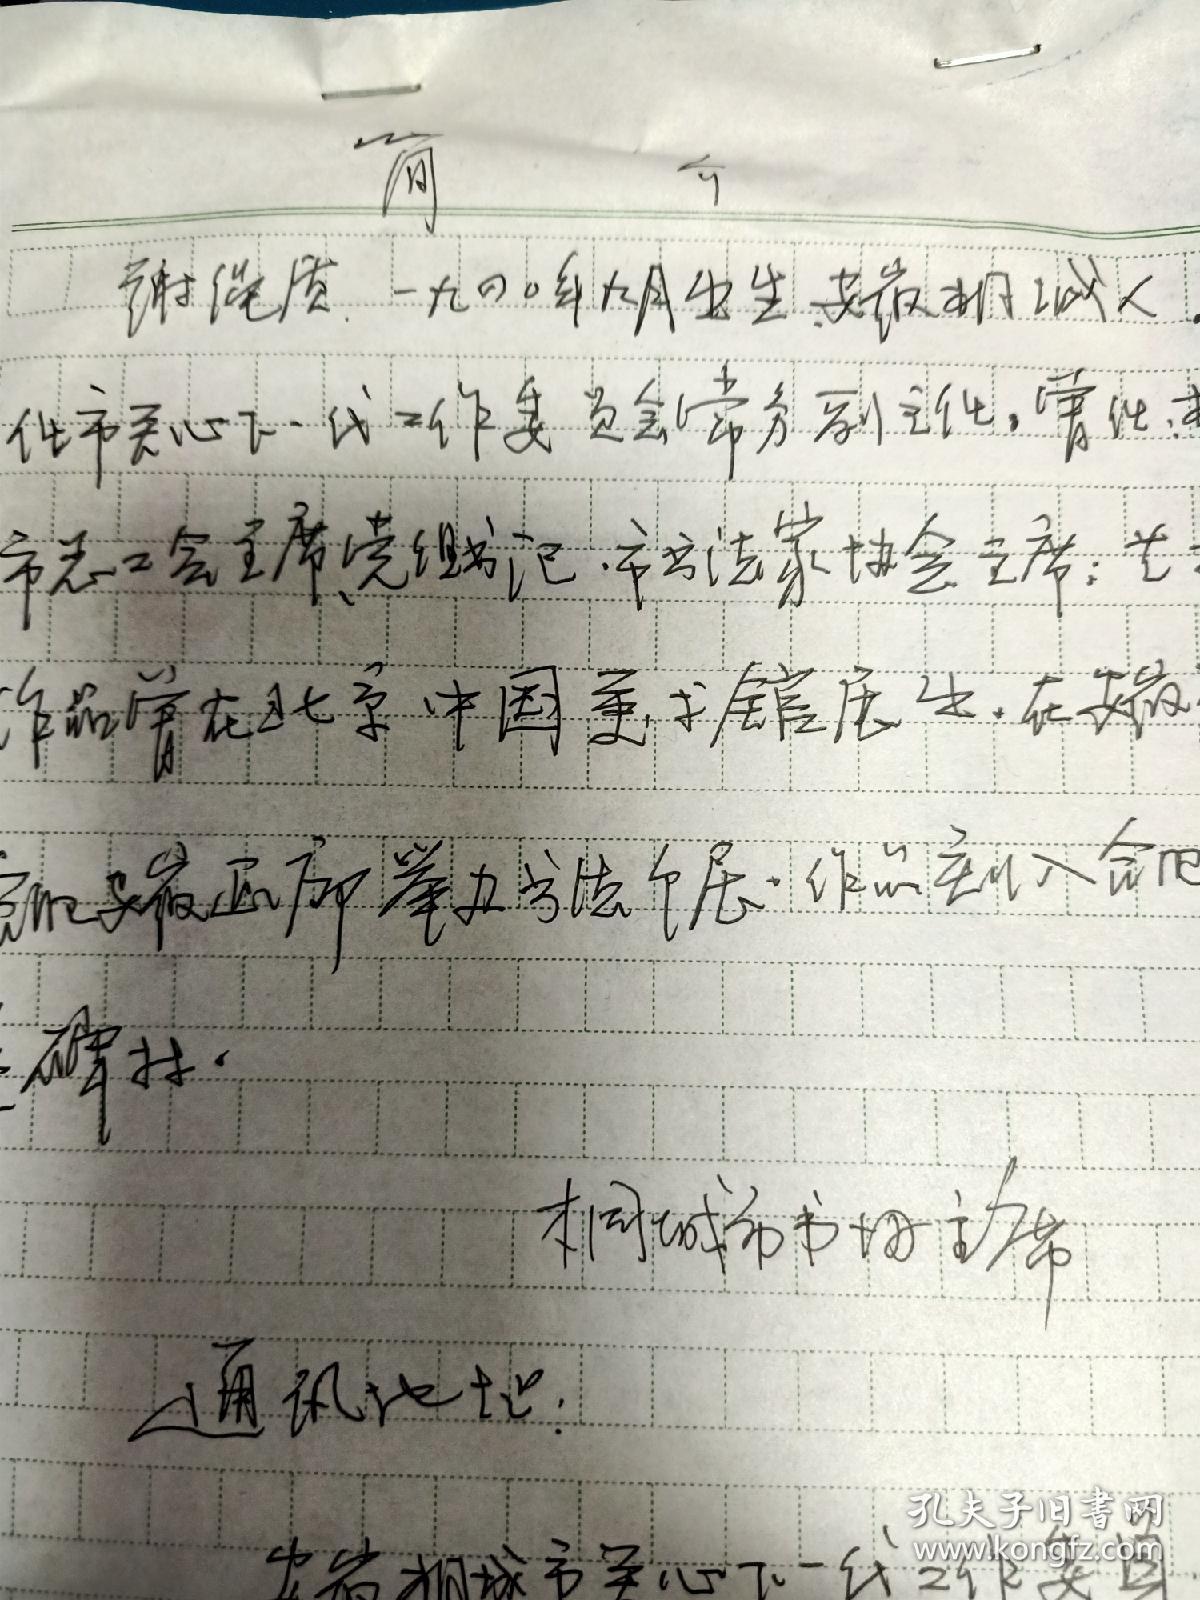 简 介
谢继质 一九四〇年九月出生、安徽桐城人.
任市关心下一代工作委员会常务副主任。曾任
市总工会主席、党组书记.市书法家协会主席;
作品曾在北京中国美术馆展出.在安徽
安徽画廊举办书法个展.作品刻入合肥
碑林.
桐城市书协主席
通讯地址:
安徽桐城市关心下一代工作委员
孔夫子旧书网
www.kongfz.com